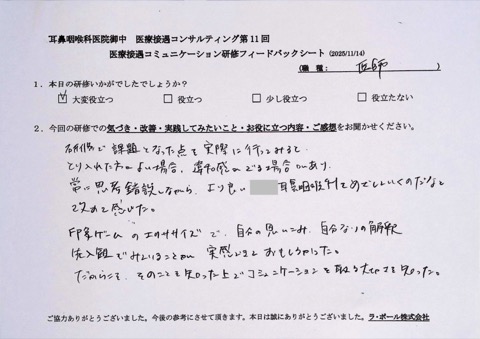 耳鼻咽喉科医院御中　医療接遇コンサルティング第11回
医療接遇コミュニケーション研修フィードバックシート（2025/11/14）
（職種：医師）
１．本日の研修いかがでしたでしょうか？
☑ 大変役立つ　□ 役立つ　□ 少し役立つ　□ 役立たない
２．今回の研修での気づき・改善・実践してみたいこと・お役に立つ内容・ご感想をお聞かせください。
研修で課題となった点を実際に行ってみると、
とり入れた方がよい場合、違和感のでる場合があり、
常に思考錯誤しながら、より良い 耳鼻咽喉科をめざしていくのだなと
改めて感じた。
印象ゲームのエクササイズで、自分の思いこみ、自分なりの解釈
先入観でみていることが実感できておもしろかった。
だからこそ、そのことを知った上でコミュニケーションを取る大切さを知った。
ご協力ありがとうございました。今後の参考にさせて頂きます。本日は誠にありがとうございました。ラ・ポール株式会社